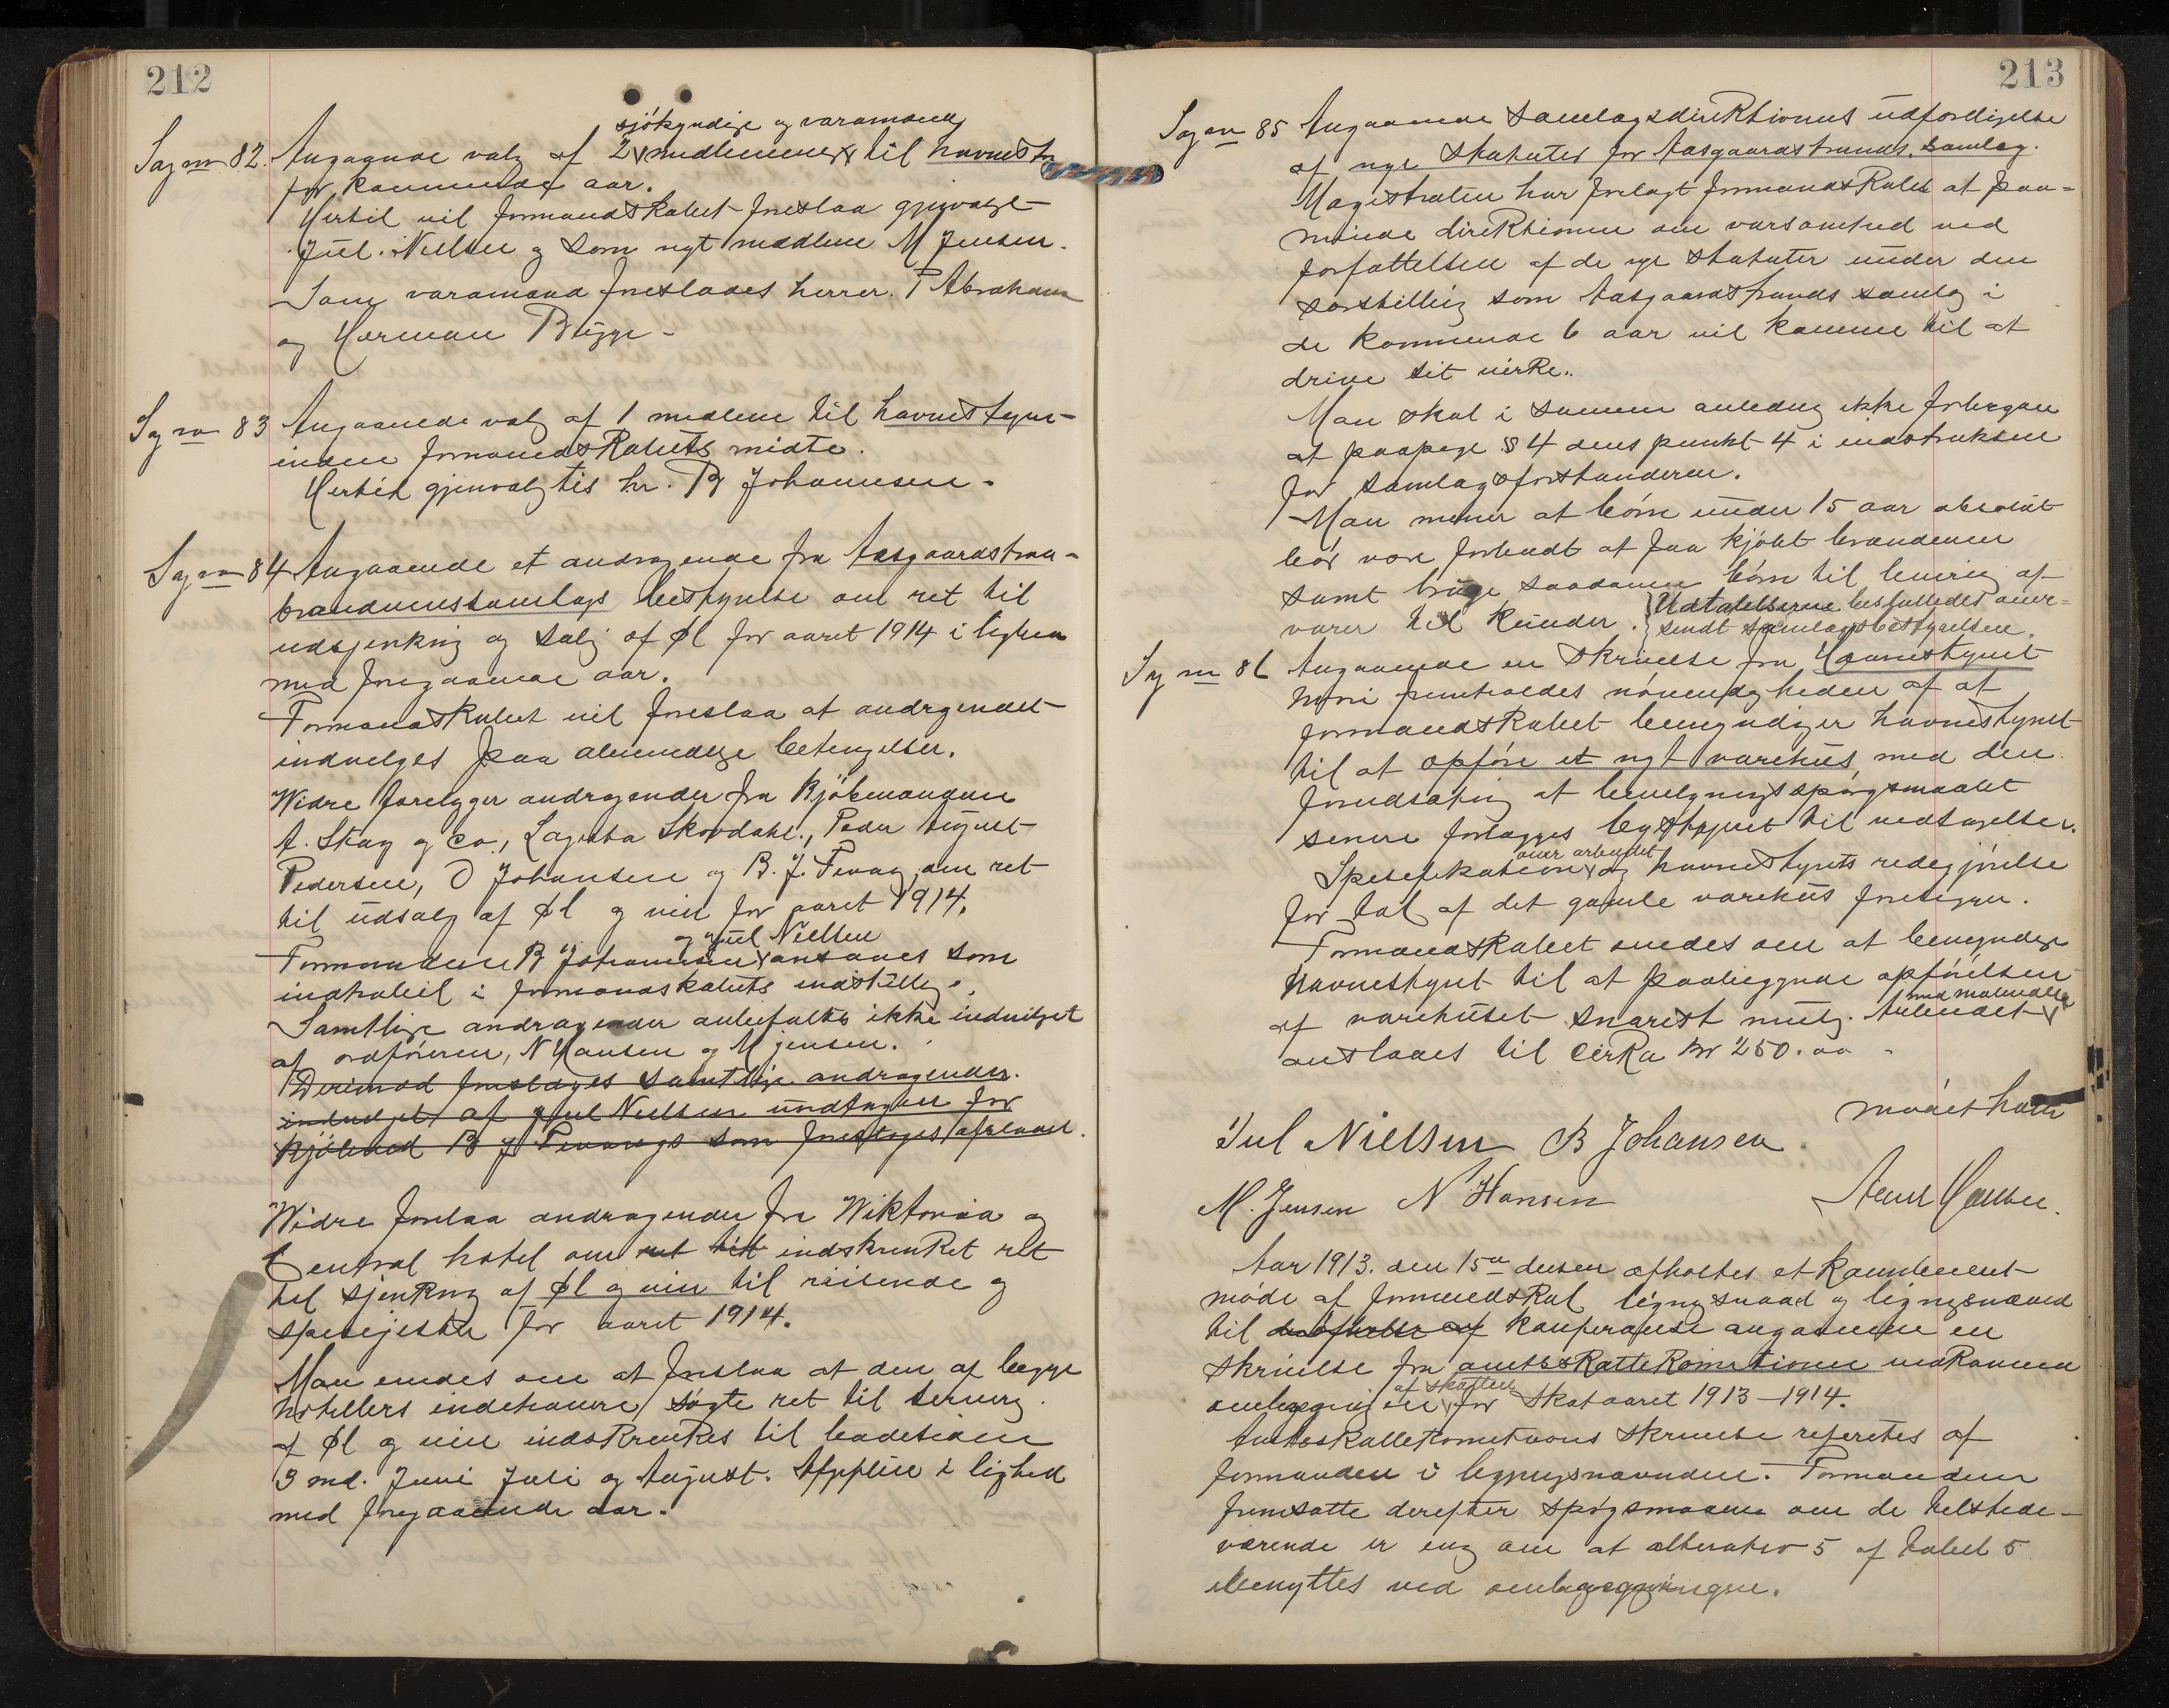 212
sjökyndige og varamænd
Sag nr 82. Angaaende valg af 2 medlemmer til havnestyr
for kommende aar.
Hertil vil formandskabet foreslaa gjenvalgt
Jul. Nielsen og som nyt medlem M Jensen.
Som varamænd foreslaaes herrer. T Abrahams
og Herman Bügge -
Sag nr 83 Angaaende valg af 1 medlem til havnestyre-
inden formandskabets midte.
Hertil gjenvalgtes hr. B Johannsen.
Sag nr 84 Angaaende et andragende fra Aasgaardstran-
brændevinssamlags bestyrelse om ret til
udsjenkning og salg af øl for aaret 1914 i lighed
med foregaaende aar.
Formandskabet vil foreslaa at andragendet
indvilges paa almindelige betingelser.
Widre forelygger andragender fra Kjöbmændene
A. Skag og Co., Skovdahl., Peder August
Pedersen, O Johansen og B. J. Fevang om ret
til udsalg af øl og vin for aaret 1914.
og Jul Nielsen
Formanden B Johannsen ansaaes som
inhabil i formandskabets indstilling.
Samtlige andragender anbefaltes ikke indvilget
af ordföreren, N Hansen og M Jensen.
Derimod foreslaaes samtlige andragender
indvilget af Jul Nielsen undtagen for
Kjöbmd B J Fevangs som foreslaaes afslaaet.
Widre forelaa andragender fra Wiktoria og
Central hotel om ret til indskrenket ret
til sjenkning af øl og vin til reisende og
spisegjester for aaret 1914.
Man enedes om at foreslaa at den af begge
hotellers indehavere søgte ret til servering
af øl og vin indskrenkes til badetiden
3 md. Juni Juli og August. Afgiften i lighed
med foregaaende aar.
213
Sag nr 85 Angaaende Samlagsdirektionens udfærdigelse
af nye Statuter for Aasgaardstrands. Samlag.
Magistraten har forelagt formandskabet at paa-
minde direktionen om varsomhed ved
forfattelsen af de nye statuter under den
særstilling som Aasgaardstrands samlag i
de kommende 6 aar vil komme til at
drive sit virke.
Man skal i samme anledning ikke forbigaa
at paapege § 4 dens punkt 4 i instruksen
for Samlagsforstanderen.
Man mener at börn under 15 aar absolut
bör være forbudt at faa kjöbt brændevin
samt bruge saadanne börn til levering af
varer til Kunder. Udtalelserne besluttedes over-
sendt samlagsbestyrelsen.
Sag nr 86 Angaaende en Skrivelse fra Havnestyret
hvori fremholdes nödvendigheden af at
formandskabet bemyndiger havnestyret
til at opföre et nyt varehus, med den
forudsætning at bevilgningsspörgsmaalet
senere forlægges bystyret til vedtagelse.
over arbeidet
Spesefikation og havnestyrets redegjörelse
for tab af det gamle varehus foreligger.
Formandskabet enedes om at bemyndige
Havnestyret til at paabegynde opförelsen
af varehuset snarest mulig. Arbeidet
med materialer
anslaaes til cirka kr 250.00 -
mödet hævet
Jul Nielsen B Johansen
M. Jensen N Hansen
Aar 1913. den 15de desem afholtes et kombineret
møde af formandskab ligningsraad og ligningsnævnd
til konferanse angaaende en
skrivelse fra amtsskattekometionen vedkommende
af skatten
omlægning for Skataaret 1913–1914.
Amtsskattekometions skrivelse refertes af
formanden i ligningsnævnden. Formanden
fremsatte derefter spörgsmaal om de tilstede-
værende er enig om at alternativ 5 af tabel 5
benyttes ved omlægningen.